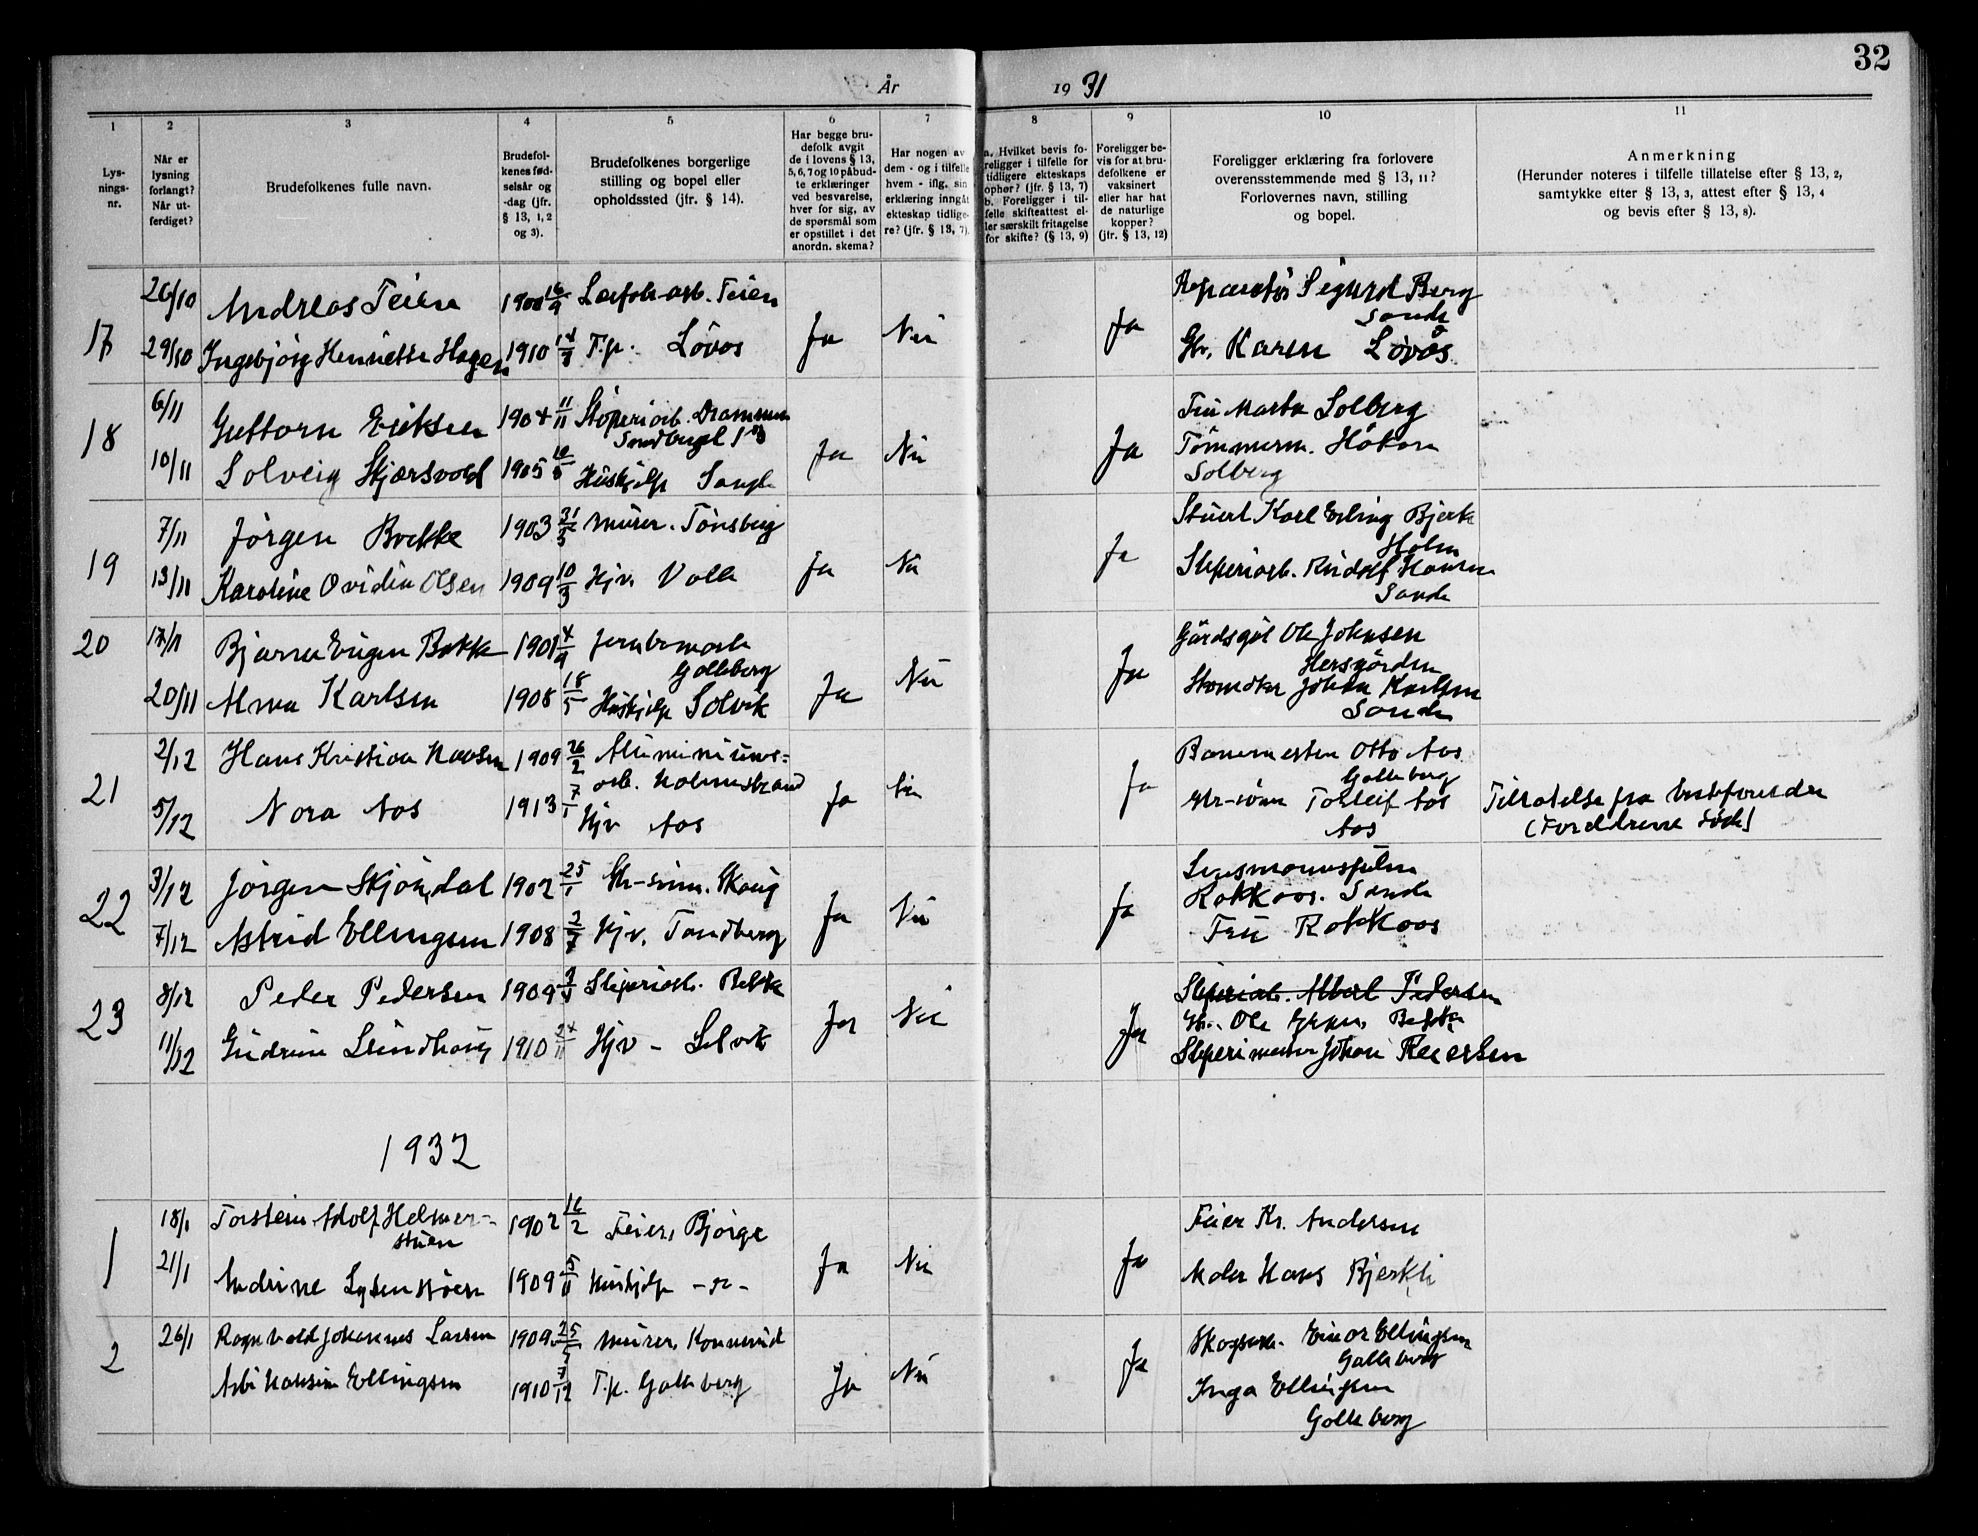 32
År 1931
1 2 3 4 5 6 7 8 9 10 11
Lysningsnr.
Når er lysning forlangt? Når utferdiget?
Brudefolkenes fulle navn.
Brudefolkenes fødselsår og -dag (jfr. § 13, 1, 2 og 3).
Brudefolkenes borgerlige stilling og bopel eller opholdssted (jfr. § 14).
Har begge brudefolk avgit de i lovens § 13, 5, 6, 7 og 10 påbudte erklæringer ved besvarelse, hver for sig, av de spørsmål som er opstillet i det anordn. skema?
Har nogen av dem - og i tilfelle hvem - iflg. sin erklæring inngått ekteskap tidligere? (jfr. § 13, 7).
a. Hvilket bevis foreligger i tilfelle for tidligere ekteskaps ophør? (jfr. § 13, 7)
b. Foreligger i tilfelle skifteattest eller særskilt fritagelse for skifte? (§ 13, 9)
Foreligger bevis for at brudefolkene er vaksinert eller har hat de naturlige kopper? (jfr. § 13, 12)
Foreligger erklæring fra forlovere overensstemmende med § 13, 11? Forlovernes navn, stilling og bopel.
Anmerkning
(Herunder noteres i tilfelle tillatelse efter § 13, 2, samtykke efter § 13, 3, attest efter § 13, 4 og bevis efter § 13, 8).
17 26/10 Andreas Teien 1908 16/9 Teien Sigurd Berg
Sande
29/10 Ingebjörg Henriette Hagen 1910 14/9 T.p. Løvås Ja Nei Ja Gbr. Karen Løvås
18 6/11 Guttorm Eriksen 1904 11/11 Sliperiarb. Drammen Fru Marta Solberg
10/11 Solveig Skjærsvold 1905 Hushjelp Sande Ja Nei Ja Tømmerm. Håkon
Solberg
19 7/11 Jørgen Bakke 1903 31/3 Murer. Tønsberg Karl Erling Bjerk
Holm
13/11 Karoline Ovidia Olsen 1909 10/3 Hjv. Ja Nei Ja Sliperiarb. Rudolf Hansen
Sande
20 17/11 Bjarne Eugen Bakke 1901 4/9 Galleberg Ole Johnsen
20/11 Alma Karlsen 1908 18/5 Hushjelp Selvik Ja Nei Ja Johan Karlsen
Sande
21 2/12 Hans Kristian Hansen 1909 26/2 Aluminiums-
arb. Holmestrand Banemester Otto Aas
Galleberg
5/12 Nora Aas 1913 7/1 Hjv Aas Ja Nei Ja Gbr-sønn Torleif Aas
Aas
Tillatelse fra bestforelder
(Foreldrene døde)
22 3/12 Jørgen Skjøndal 1902 25/1 Gbr-sønn. Skaug Lensmannsfulm
Rokkaas. Sande
7/12 Astrid Ellingsen 1908 2/7 Hjv. Tandberg Ja Nei Ja Fru Rokkaas
23 8/12 Peder Pedersen 1909 Sliperiarb. Bakke Sliperiarb. Albert Pedersen
Gbr. Ole Bakke
11/12 Gudrun Lindhaug 1910 24/11 Hjv - Selvik Ja Nei Ja Sliperimester Johan Reiersen
1932
1 18/1 Torstein Adolf Helmer-
stuen 1902 16/2 Feier, Bjørge Feier Kr. Andersen
21/1 Andrine 1909 Hushjelp - " - Ja Nei Ja Maler Hans Bjerkli
2 26/1 Ragnvald Johannes Larsen 1909 25/5 Murer, Konnerud Skogsarb. Einar Ellingsen
Galleberg
Ellingsen 1910 7/12 T.p. Galleberg Ja Nei Ja Inga Ellingsen
Galleberg